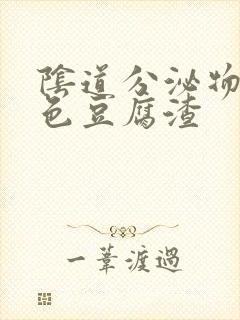 陰道分泌物
色豆腐渣
一葦渡過